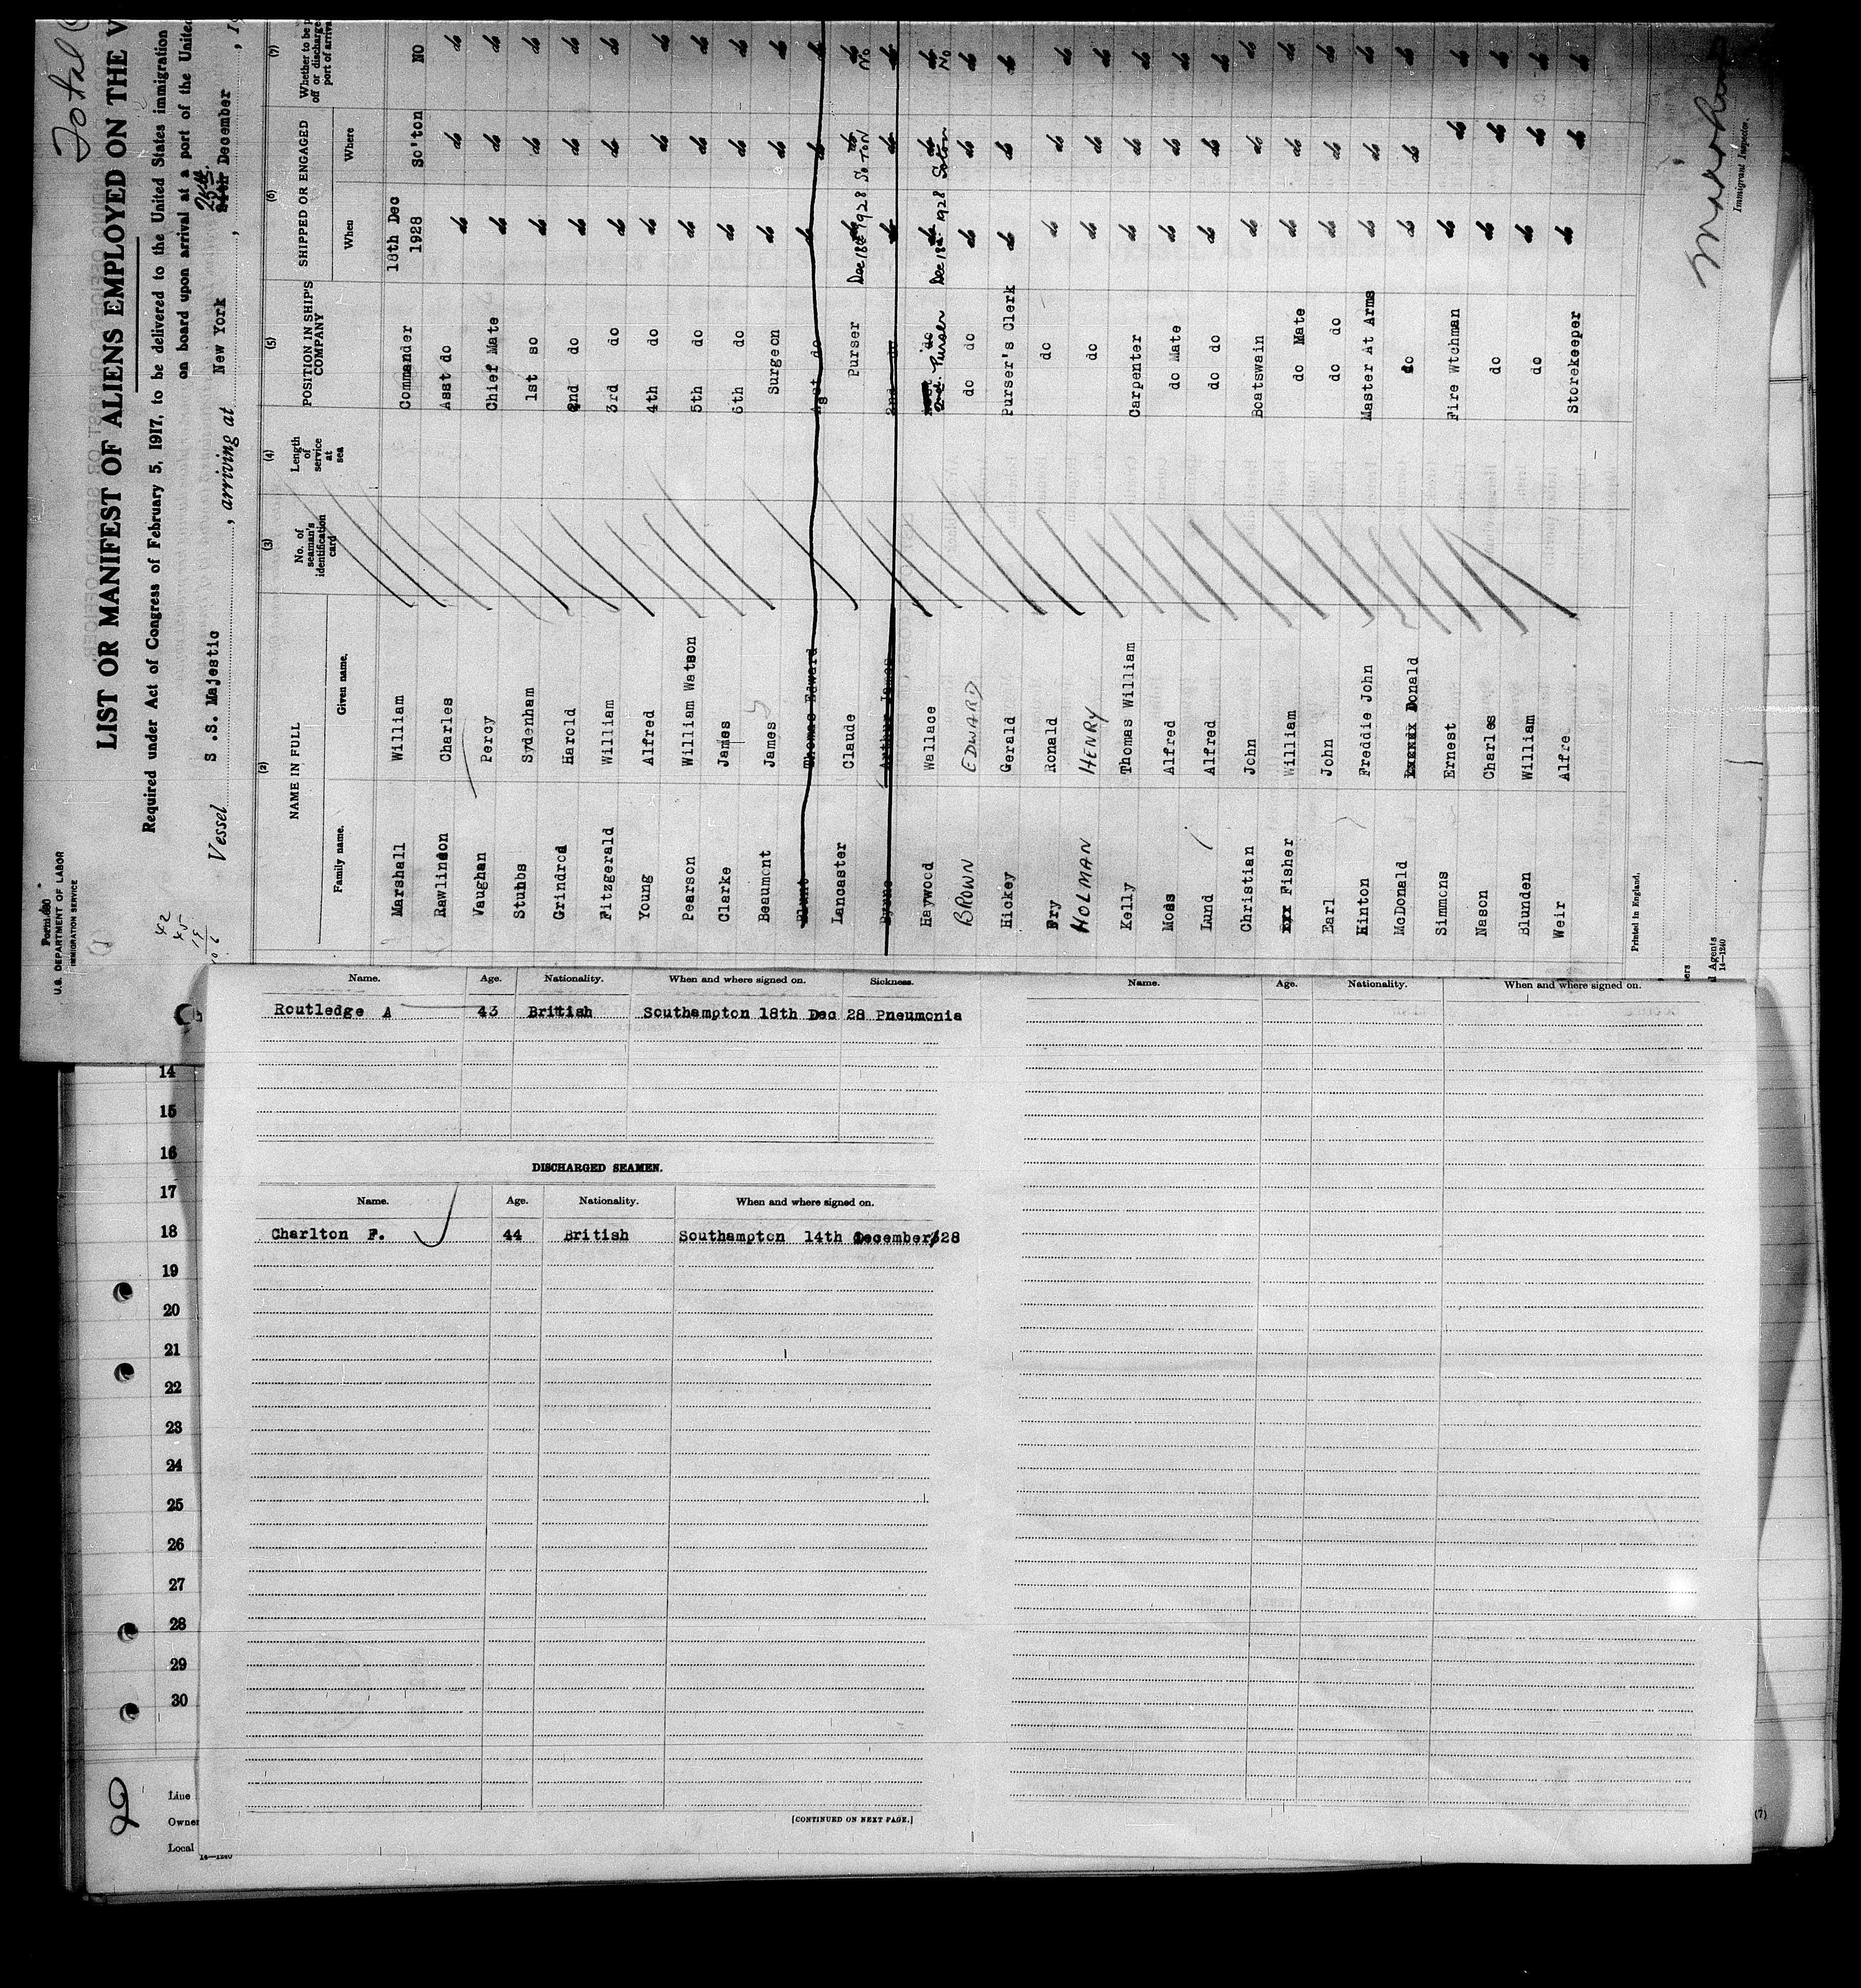 Total
Form 690
U.S. DEPARTMENT OF LABOR
IMMIGRATION SERVICE
LIST OR MANIFEST OF ALIENS EMPLOYED ON THE V
Required under Act of Congress of February 5, 1917, to be delivered to the United States immigration
on board upon arrival at a port of the United
42
45
19
Vessel S .S. Majestic, arriving at New York, 25th December, 19
(2) (3) (4) (5) (6) (7)
NAME IN FULL No. of seaman's identification card Length of service at sea POSITION IN SHIP'S COMPANY SHIPPED OR ENGAGED Whether to be p
off or discharge
port of arrival
Family name. Given name. When Where
Marshall William Commander 18th Dec 1928 So'ton NO
Rawlinson Charles Asst do do do do
Vaughan Percy Chief Mate do do do
Stubbs Sydenham 1st so do do do
Grindrod Harold 2nd do do do do
Fitzgerald William 3rd do do do do
Young Alfred 4th do do do do
Pearson William Watson 5th do do do do
Clarke James 6th do do do do
Beaumont James Surgeon do do do
Blunt Thomas Edward Asst do do do do
Lancaster Claude Purser Dec 18th 1928 SoTON No
Byrne Arthur James 2nd do do do do
Haywood Wallace 2nd. Purser do Dec 18th 1928 Soton No
BROWN EDWARD do do do do do
Hickey Gerald Purser's Clerk do do do
Fry Ronald do do do do
HOLMAN HENRY do do do do
Kelly Thomas William Carpenter do do do
Moss Alfred do Mate do do do
Lund Alfred do do do do do
Christian John Boatswain do do do
Fisher William do Mate do do do
Earl John do do do do do
Hinton Freddie John Master At Arms do do do
McDonald Donald do do do do
Simmons Ernest Fire Wtchman do do do
Nason Charles do do do do
Blunden William do do do do
Weir Alfre Storekeeper do do do
Printed in England.
ers
d Agents
14—1240
Immigrant Inspector.
Name. Age. Nationality. When and where signed on. Sickness.
Routledge A 43 British Southampton 18th Dec 28 Pneumonia
DISCHARGED SEAMEN.
Name. Age. Nationality. When and where signed on.
Charlton F. 44 British Southampton 14th December/28
[CONTINUED ON NEXT PAGE.]
Name. Age. Nationality. When and where signed on.
14
15
16
17
18
19
20
21
22
23
24
25
26
27
28
29
30
Line
Owner
Local
14—1240
(7)